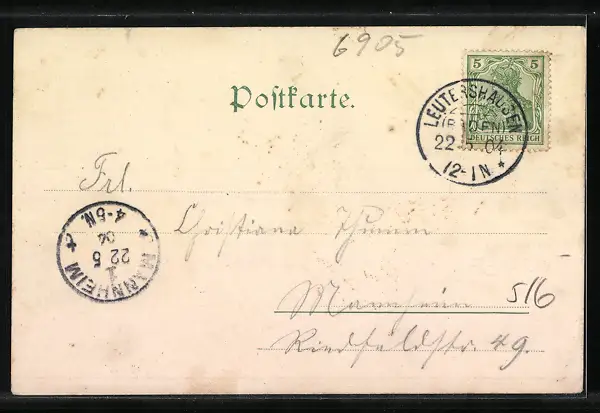 6905
Postkarte.
5 5
DEUTSCHES REICH
LEUTERSHAUSEN
(BADEN)
22 5 04
12-1N.
Frl.
Christiana Thumm
Mannheim
516
Riedfeldstr. 49.
MANNHEIM
1
22 5
04
4-5N.